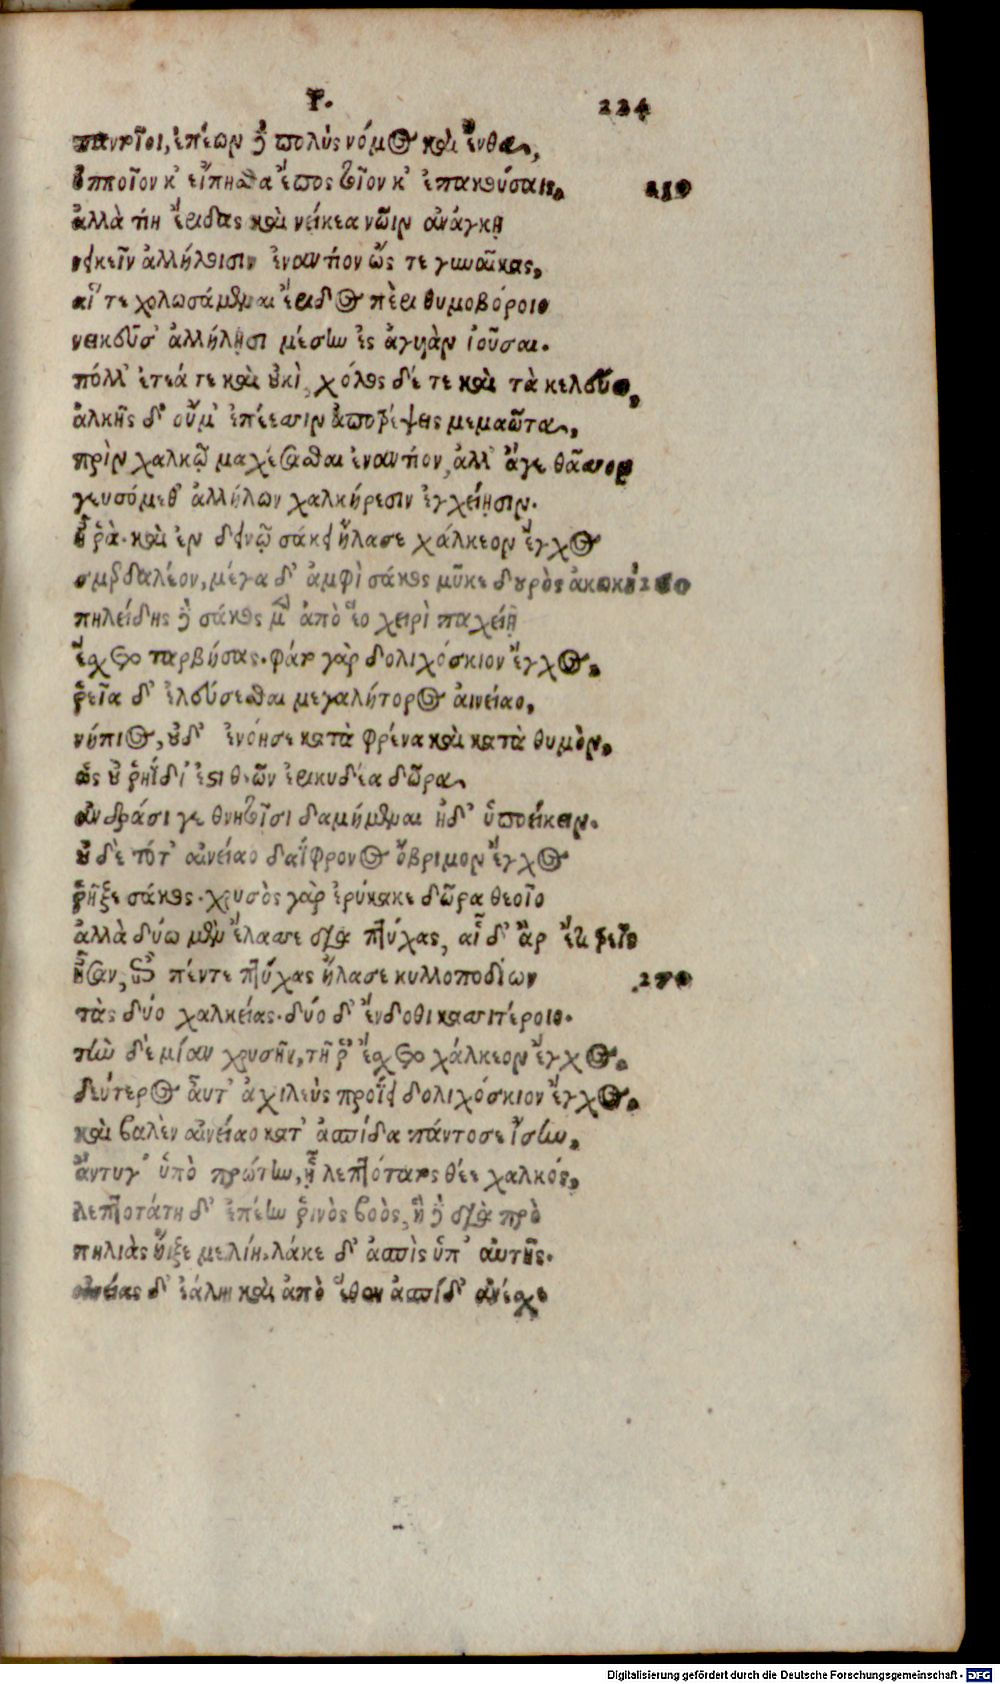 Υ. 224
παντοῖοι, ἐπέων δὲ πολὺς νόμος καὶ ἔνθα,
ὁπποῖον κ' εἴπησθα ἔπος τοῖον κ' ἐπακούσαις. 250
ἀλλὰ τίη ἔριδας καὶ νείκεα νῶιν ἀνάγκη
νεικεῖν ἀλλήλοισιν ἐναντίον ὥς τε γυναῖκας,
αἵ τε χολωσάμεναι ἔριδος πέρι θυμοβόροιο
νεικεῦσ' ἀλλήλησι μέσην ἐς ἀγυιὰν ἰοῦσαι.
πόλλ' ἐτεά τε καὶ οὐκὶ, χόλος δέ τε καὶ τὰ κελεύει,
ἀλκῆς δ' οὔμ' ἐπέεσσιν ἀποτρέψεις μεμαῶτα,
πρὶν χαλκῷ μαχέσασθαι ἐναντίον, ἀλλ' ἄγε θᾶσσον
γευσόμεθ' ἀλλήλων χαλκήρεσιν ἐγχείησιν.
ἦ ῥὰ. καὶ ἐν δεινῷ σάκει ἤλασε χάλκεον ἔγχος
σμερδαλέον, μέγα δ' ἀμφὶ σάκος μῦκε δουρὸς ἀκωκῇ 260
πηλείδης δὲ σάκος μὲν ἀπὸ ἕο χειρὶ παχείῃ
ἔσχετο ταρβήσας. φάτο γὰρ δολιχόσκιον ἔγχος.
ῥεῖα δ' ἐλεύσεσθαι μεγαλήτορος αἰνείαο,
νήπιος, οὐδ' ἐνόησε κατὰ φρένα καὶ κατὰ θυμὸν,
ὡς οὐ ῥηΐδι' ἐστὶ θεῶν ἐρικυδέα δῶρα
ἀνδράσι γε θνητοῖσι δαμήμεναι ἠδ' ὑποείκειν.
οὐδὲ τότ' αἰνείαο δαΐφρονος ὄβριμον ἔγχος
ῥῆξε σάκος. χρυσὸς γὰρ ἐρύκακε δῶρα θεοῖο
ἀλλὰ δύω μὲν ἔλασσε διὰ πτύχας, αἱ δ' ἂρ ἔτι τρεῖς
ἦσαν, ἐπεὶ πέντε πτύχας ἤλασε κυλλοποδίων 270
τὰς δύο χαλκείας. δύο δ' ἔνδοθι κασσιτέροιο.
τὴν δὲ μίαν χρυσῆν, τῇ ῥ' ἔσχετο χάλκεον ἔγχος.
δεύτερος αὖτ' ἀχιλεὺς προΐει δολιχόσκιον ἔγχος.
καὶ βαλὲν αἰνείαο κατ' ἀσπίδα πάντοσε ἴσην,
ἄντυγ' ὑπὸ πρώτην, ᾗ λεπτότατος θέε χαλκός,
λεπτοτάτη δ' ἐπέην ῥινὸς βοὸς, ἡ δὲ διὰ πρὸ
πηλιὰς ἤιξε μελίη. λάκε δ' ἀσπὶς ὑπ' αὐτῆς.
αἰνείας δ' ἐάλη καὶ ἀπὸ ἕθεν ἀσπίδ' ἀνέσχε
Digitalisierung gefördert durch die Deutsche Forschungsgemeinschaft - DFG